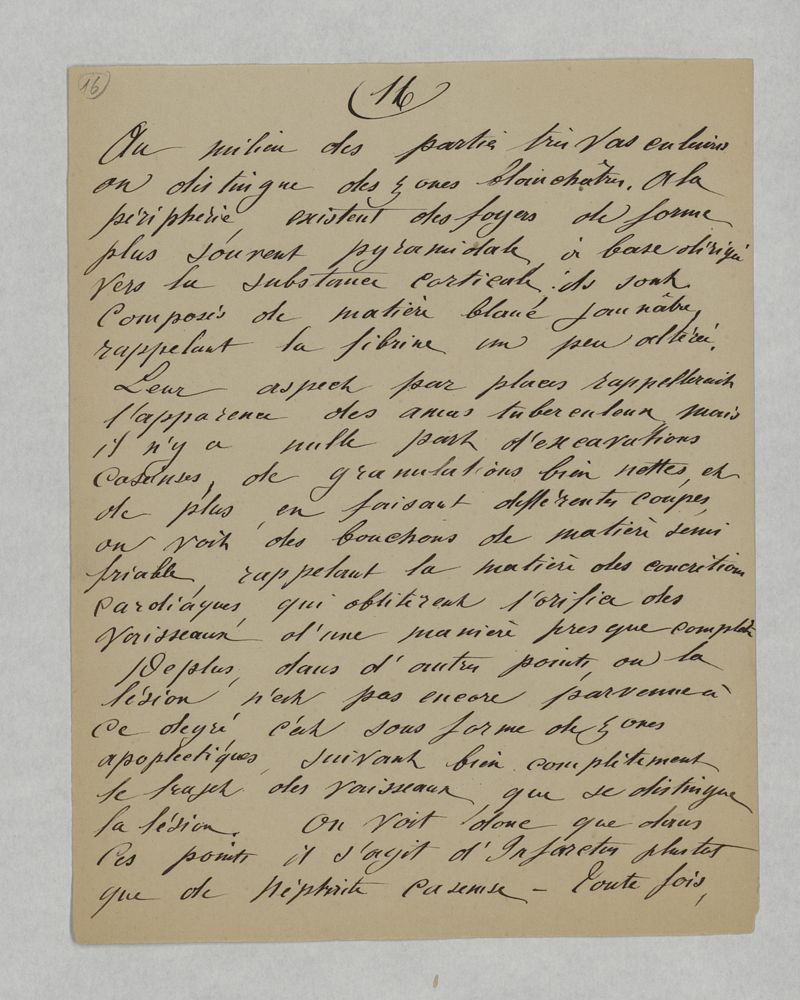 16
16
Au milieu des parties très vasculaires
on distingue des zones blanchâtres. A la
périphérie, existent des foyers de forme
plus souvent pyramidale, à base dirigée
vers la substance corticale; ils sont
composés de matière blanc jaunâtre,
rappelant la fibrine un peu altérée.
Leur aspect par places rappellerait
l'apparence des amas tuberculeux, mais
il n'y a nulle part d'excavations
caséuses, de granulations bien nettes, et
de plus, en faisant différentes coupes,
on voit des bouchons de matière semi
friable, rappelant la matière des concrétions
cardiaques, qui oblitèrent l'orifice des
vaisseaux d'une manière presque complète
De plus, dans d'autres points, où la
lésion n'est pas encore parvenue à
ce degré, c'est sous forme de zones
apoplectiques, suivant bien complètement
le trajet des vaisseaux, que se distingue
la lésion. On voit donc que dans
ces points il s'agit d'Infarctus plustot
que de Néphrite caséuse – Toute fois,